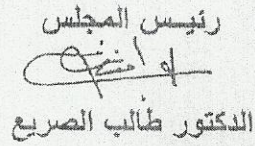 رئيس المجلس
الدكتور طالب الصريع